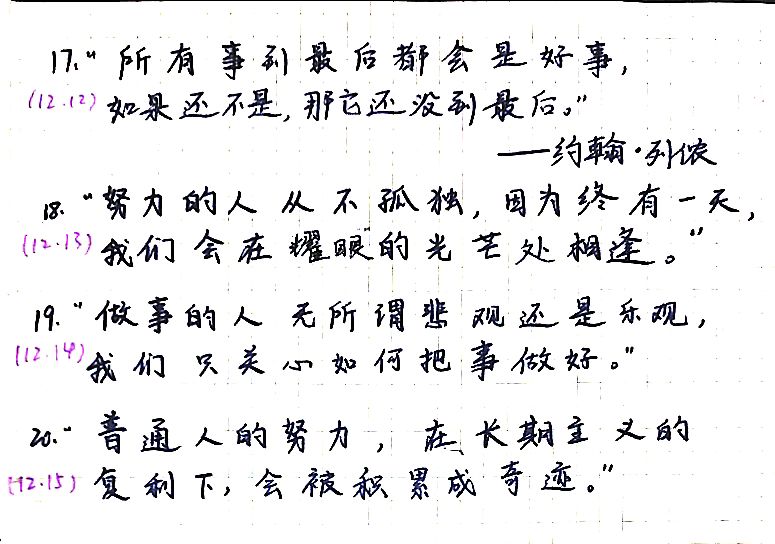 17.“所有事到最后都会是好事,
(12.12) 如果还不是,那它还没到最后。”
——约翰·列侬
18.“努力的人从不孤独,因为终有一天,
(12.13) 我们会在耀眼的光芒处相逢。”
19.“做事的人无所谓悲观还是乐观,
(12.14) 我们只关心如何把事做好。”
20.“普通人的努力,在长期主义的
(12.15) 复利下,会被积累成奇迹。”